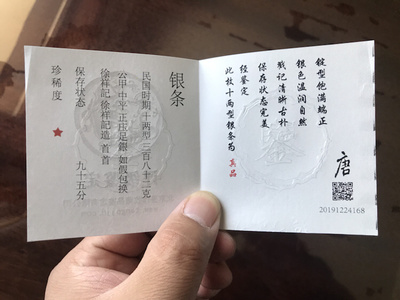 银条
民国时期 十两型 三百八十二克
公甲 中平 正应足銀 如假包换
徐祥記 徐祥記造 首 首
保存状态 九十五分
珍稀度 ★
锭型饱满端正
银色温润自然
戳记清晰古朴
保存状态完美
经鉴定
此枚十两型银条为 真品
唐
20191224168